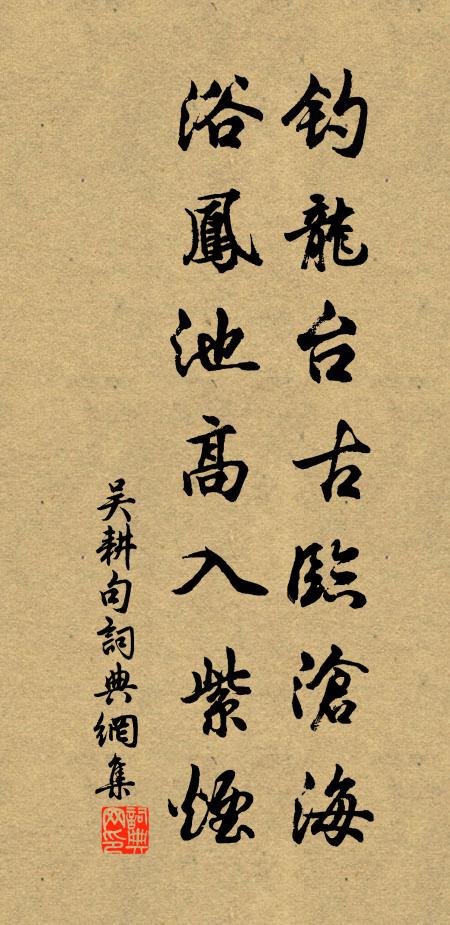 钓龍台古臨滄海
浴鳳池高入紫煙
吴耕句詞典網集
詞典网印